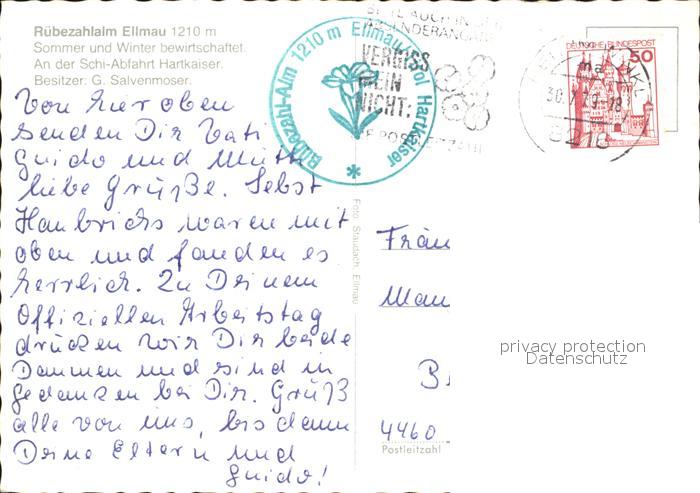 Rübezahlalm Ellmau 1210 m
Sommer und Winter bewirtschaftet.
An der Schi-Abfahrt Hartkaiser.
Besitzer: G. Salvenmoser.
Von hier oben
senden Dir Vati
Guido und Mutti
liebe Grüße. Selbst
Haubrichs waren mit
oben und fanden es
herrlich. Zu Deinem
offiziellen Arbeitstag
drücken wir Dir beide
Daumen und sind in
Gedanken bei Dir. Grüß
alle von uns, bis dann
Deine Eltern und
Guido!
Rübezahl-Alm 1210 m Ellmau/Tirol Hartkaiser
*
VERGISS
MEIN
NICHT:
DEUTSCHE BUNDESPOST
50
30.
8218
Foto: Staudach, Ellmau
Fräu
Man
B
4460
Postleitzahl
privacy protection
Datenschutz